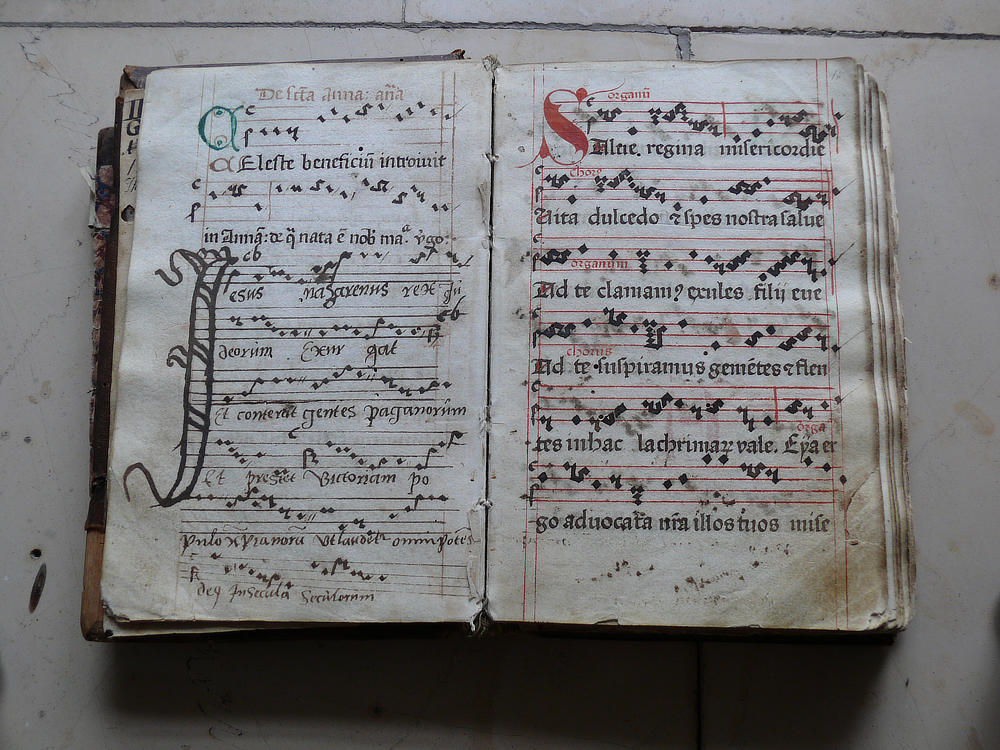 De scta Anna: aña
CEleste beneficiū introivit
in Annā: de q̄ nata ē nob̄ ma.ᵃ v̄go.
esus nazarenus rex Ju
deorum Exur gat
Et conterat gentes paganorum
Et prestet Victoriam po
pulo xp̄ianorū Ut laudet omnipotēs
deꝰ In secula Seculorum
organū
SAlue. regina misericordie
chorꝰ
Uita dulcedo ⁊ spes nostra salue
organum
Ad te clamamꝰ exules filij eue
chorus
Ad te suspiramus gemētes ⁊ flen
orga
tes in hac lachrimaꝝ vale. Eya er
go aduocata n̄ra illos tuos mise